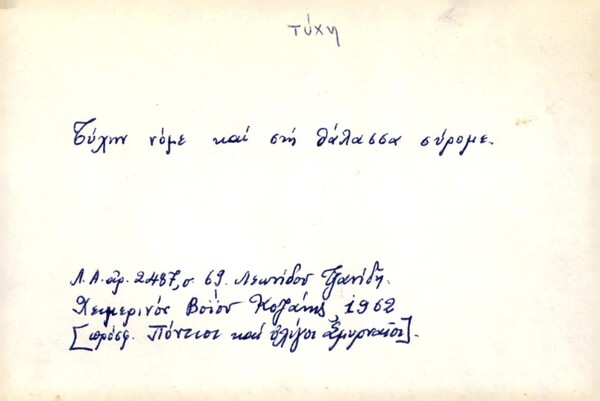 τύχη
Τύχην νόμε καί στή θάλασσα σύρομε.
Λ.Α. ἀρ. 2487, σ. 69. Λεωνίδου Τζανίδη.
Χειμερινός Βοΐου Κοζάνης, 1962
[πρόσφ. Πόντιοι καί ὀλίγοι Σμυρναῖοι].